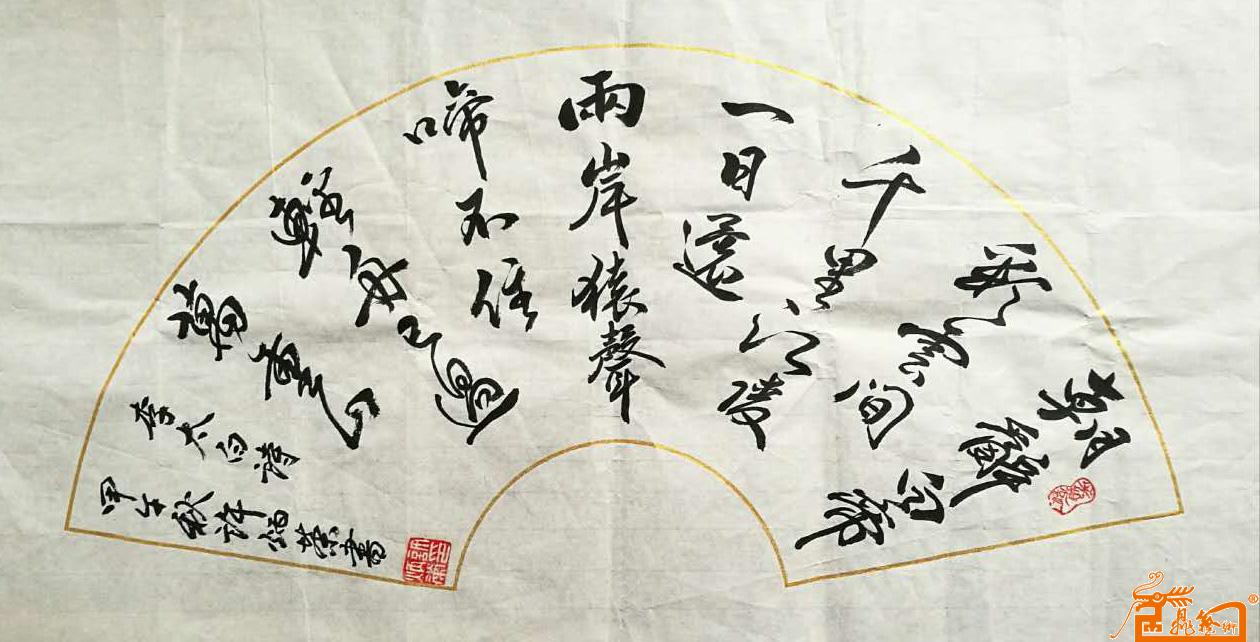 朝辭白帝
彩雲間
千里江陵
一日還
兩岸猿聲
啼不住
輕舟已過
萬重山
李太白詩
甲午秋許炳榮書